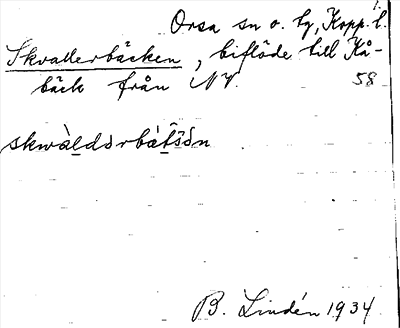 Orsa sn o. tg, Kopp. l.
Skvallerbäcken, biflöde till Kå-
bäck från NV. 58
skwàldərbät̂šən
B. Lindén 1934